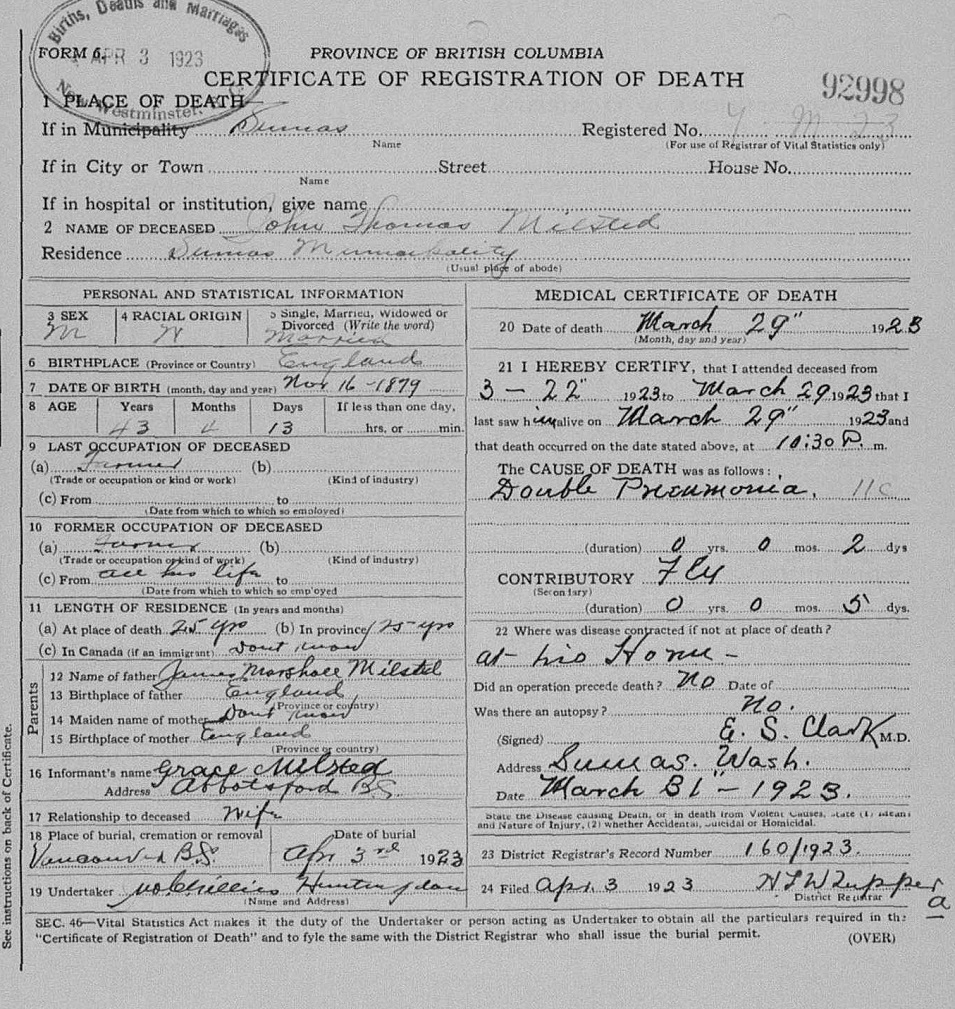 Births, Deaths and Marriages
APR 3 1923
New Westminster, B.C.
FORM 6.
PROVINCE OF BRITISH COLUMBIA
CERTIFICATE OF REGISTRATION OF DEATH
92998
1 PLACE OF DEATH
If in Municipality Sumas Registered No.
Name (For use of Registrar of Vital Statistics only)
If in City or Town Street House No.
Name
If in hospital or institution, give name
2 NAME OF DECEASED John Thomas Milsted
Residence Sumas Municipality
(Usual place of abode)
PERSONAL AND STATISTICAL INFORMATION
3 SEX 4 RACIAL ORIGIN 5 Single, Married, Widowed or
Divorced (Write the word)
M W Married
6 BIRTHPLACE (Province or Country) England
7 DATE OF BIRTH (month, day and year) Nov 16 - 1879
8 AGE Years Months Days If less than one day,
43 4 13 hrs. or min.
9 LAST OCCUPATION OF DECEASED
(a) Farmer (b)
(Trade or occupation or kind or work) (Kind of industry)
(c) From to
(Date from which to which so employed)
10 FORMER OCCUPATION OF DECEASED
(a) Farmer (b)
(Trade or occupation or kind of work) (Kind of industry)
(c) From all his life to
(Date from which to which so employed
11 LENGTH OF RESIDENCE (In years and months)
(a) At place of death 25 yrs (b) In province 25 yrs
(c) In Canada (if an immigrant) Dont know
Parents
12 Name of father James Marshall Milsted
13 Birthplace of father England
(Province or country)
14 Maiden name of mother Dont know
15 Birthplace of mother England
(Province or country)
16 Informant's name Grace Milsted
Address Abbotsford B.C.
17 Relationship to deceased Wife
18 Place of burial, cremation or removal Date of burial
Vancouver B.C. Apr 3rd 1923
19 Undertaker Huntingdon
(Name and Address)
MEDICAL CERTIFICATE OF DEATH
20 Date of death March 29" 1923
(Month, day and year)
21 I HEREBY CERTIFY, that I attended deceased from
3 - 22" 1923 to March 29 1923 that I
last saw him alive on March 29" 1923 and
that death occurred on the date stated above, at 10:30 P. m.
The CAUSE OF DEATH was as follows:
Double Pneumonia.
(duration) 0 yrs. 0 mos. 2 dys
CONTRIBUTORY Flu
(Secondary)
(duration) 0 yrs. 0 mos. 5 dys.
22 Where was disease contracted if not at place of death?
at his Home -
Did an operation precede death? No Date of
Was there an autopsy? No.
(Signed) E. S. Clark M.D.
Address Sumas. Wash.
Date March 31" - 1923.
State the Disease causing Death, or in death from Violent Causes, state (1) Means
and Nature of Injury, (2) whether Accidental, Suicidal or Homicidal.
23 District Registrar's Record Number 160/1923.
24 Filed Apr. 3 1923
District Registrar
SEC. 46—Vital Statistics Act makes it the duty of the Undertaker or person acting as Undertaker to obtain all the particulars required in the
"Certificate of Registration of Death" and to fyle the same with the District Registrar who shall issue the burial permit. (OVER)
See instructions on back of Certificate.